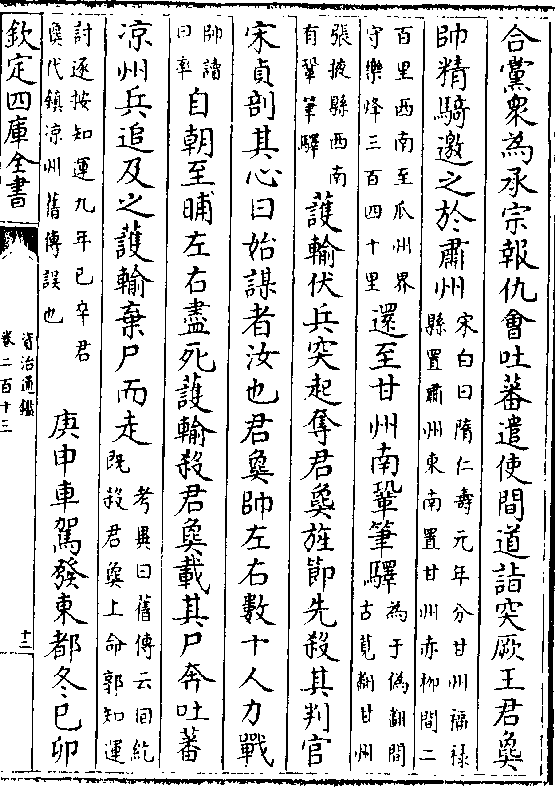 合黨衆為承宗報仇會吐蕃遣使間道詣突厥王君㚟
帥精騎邀之於肅州
宋白曰隋仁壽元年分甘州福禄
縣置肅州東南置甘州赤柳澗二
百里西南至瓜州界
守樂烽三百四十里
還至甘州南鞏筆驛
為于偽翻間
古莧翻甘州
張掖縣西南
有鞏筆驛
護輸伏兵突起奪君㚟旌節先殺其判官
宋貞剖其心曰始謀者汝也君㚟帥左右數十人力戰
帥讀
曰率
自朝至晡左右盡死護輸殺君㚟載其尸奔吐蕃
凉州兵追及之護輸棄尸而走
考異曰舊傳云回紇
既殺君㚟上命郭知運
討逐按知運九年已卒君
㚟代鎮凉州舊傳誤也
庚申車駕發東都冬己卯
欽定四庫全書
資治通鑑
卷二百十三
十二